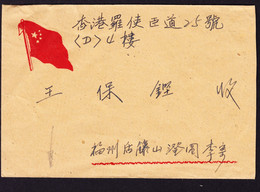 香港羅便臣道25號
〈D〉4樓
王保鏗收
福州后藤山澄園李寄